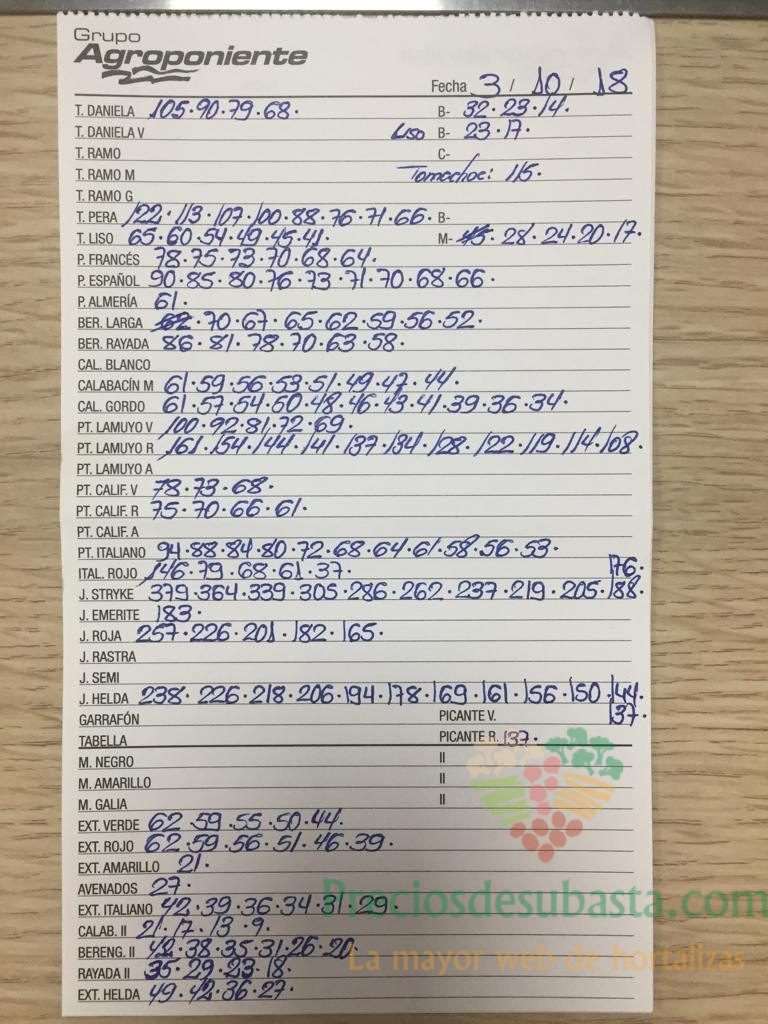 Grupo
Agroponiente
Fecha 3 / 10 / 18
T. DANELA 105·90·79·68· B- 32·23·14·
T. DANIELA V Liso B- 23·17·
T. RAMO C-
T. RAMO M Tomachoc: 115·
T. RAMO G
T. PERA 122·113·107·100·88·76·71·66· B-
T. LISO 65·60·54·49·45·41· M- 28·24·20·17·
P. FRANCÉS 78·75·73·70·68·64·
P. ESPAÑOL 90·85·80·76·73·71·70·68·66·
P. ALMERÍA 61·
BER. LARGA 70·67·65·62·59·56·52·
BER. RAYADA 86·81·78·70·63·58·
CAL. BLANCO
CALABACÍN M 61·59·56·53·51·49·47·44·
CAL. GORDO 61·57·54·50·48·46·43·41·39·36·34·
PT. LAMUYO V 100·92·81·72·69·
PT. LAMUYO R 161·154·144·141·137·134·128·122·119·114·108·
PT. LAMUYO A
PT. CALIF. V 78·73·68·
PT. CALIF. R 75·70·66·61·
PT. CALIF. A
PT. ITALIANO 94·88·84·80·72·68·64·61·58·56·53·
ITAL. ROJO 146·79·68·61·37· 176·
J. STRYKE 379·364·339·305·286·262·237·219·205·188·
J. EMERITE 183·
J. ROJA 257·226·201·182·165·
J. RASTRA
J. SEMI
J. HELDA 238·226·218·206·194·178·169·161·156·150·144·
GARRAFÓN PICANTE V. 137·
TABELLA PICANTE R. 137·
M. NEGRO II
M. AMARILLO II
M. GALIA II
EXT. VERDE 62·59·55·50·44·
EXT. ROJO 62·59·56·51·46·39·
EXT. AMARILLO 21·
AVENADOS 27·
Preciosdesubasta.com
EXT. ITALIANO 42·39·36·34·31·29·
CALAB. II 21·17·13·9·
BERENG. II 42·38·35·31·26·20
La mayor web de hortalizas
RAYADA II 35·29·23·18·
EXT. HELDA 49·42·36·27·